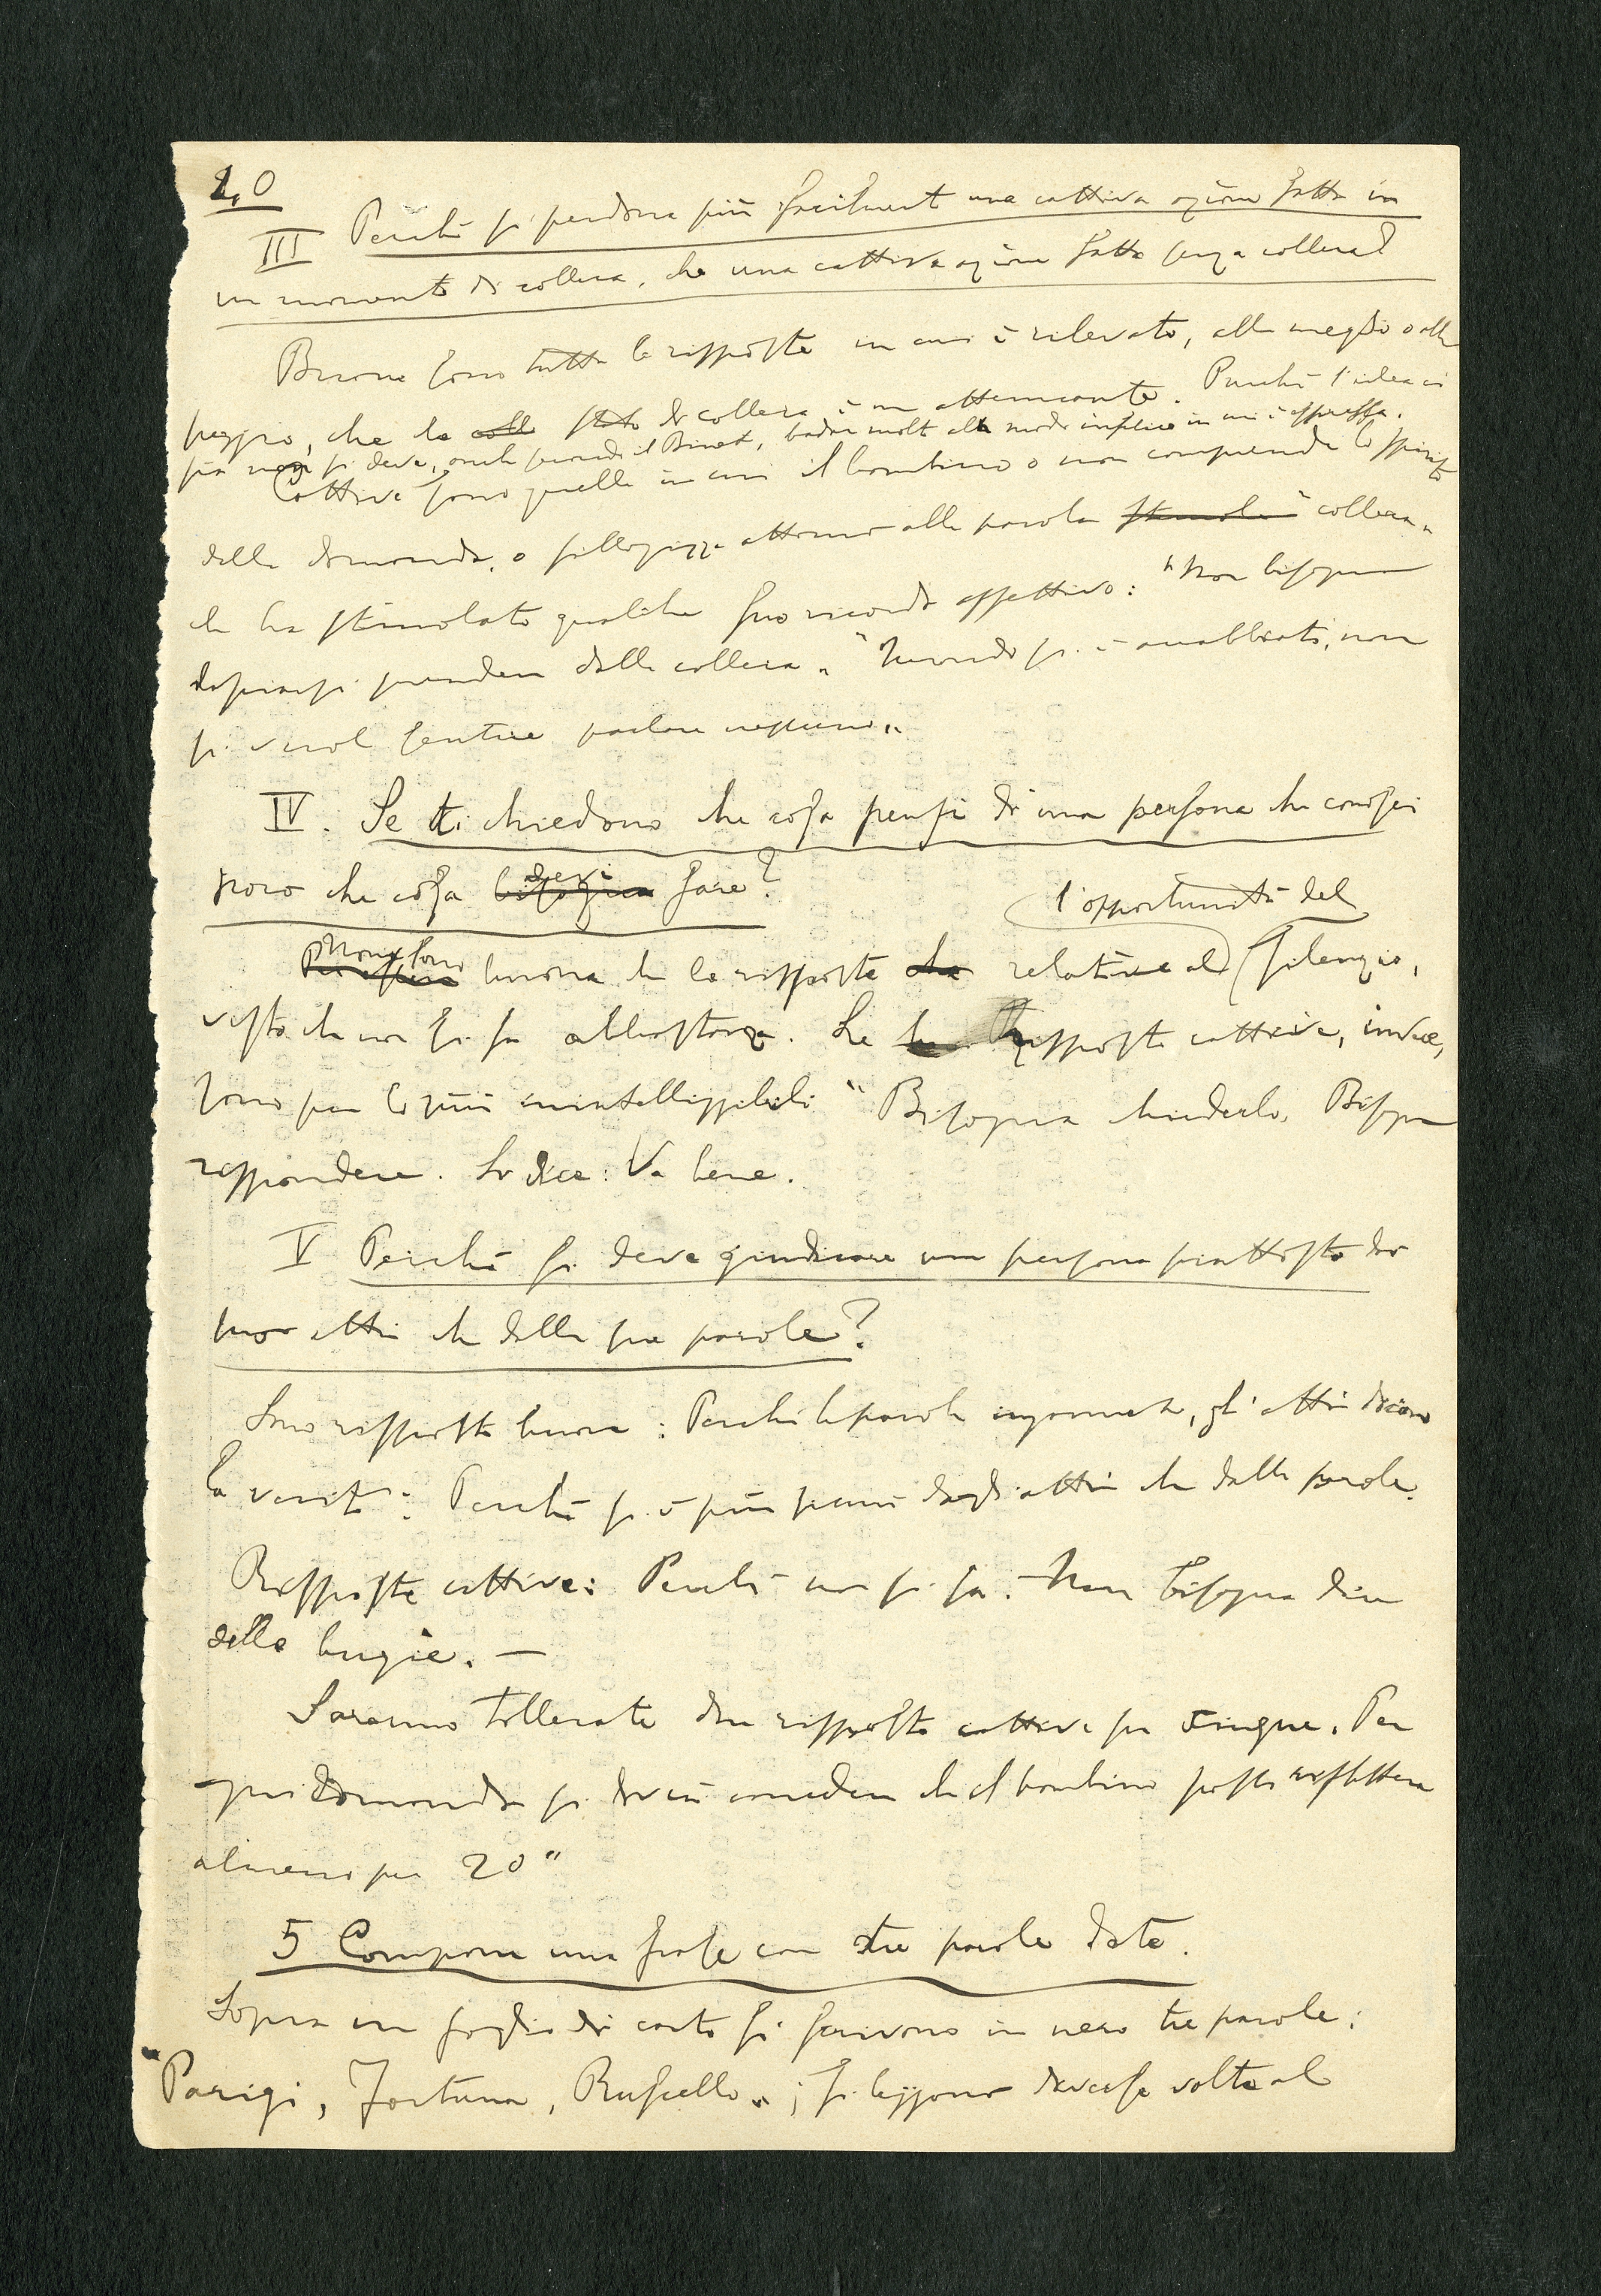 10
III Perché si perdona più facilmente una cattiva azione fatta in
un momento di collera, che una cattiva azione fatta senza collera?
Buone sono tutte le risposte in cui è rilevato, alla meglio o alla
peggio, che lo stato di collera è un attenuante. Purché l'idea ci
sia non si deve, anche secondo il Binet, badare molto al modo infelice in cui è espressa.
Cattive sono quelle in cui il bambino o non comprende lo spirito
della domanda, o sillogizza attorno alla parola "collera"
che ha stimolato qualche suo ricordo affettivo: "Non bisogna
lasciarsi prendere dalla collera" "Quando si è arrabbiati, non
si vuol sentire parlare nessuno"
IV. Se ti chiedono che cosa pensi di una persona che conosci
poco che cosa devi fare?
l'opportunità del
Non sono buone che le risposte relative al silenzio,
visto che non si sa abbastanza. Le risposte cattive, invece,
sono per lo più inintelligibili "Bisogna chiederlo, Bisogna
rispondere. Si dice: Va bene.
V Perché si deve giudicare una persona piuttosto dai
suoi atti che dalle sue parole?
Sono risposte buone: Perché le parole ingannano, gli atti dicono
la verità: Perché si è più sicuri dagli atti che dalle parole.
Risposte cattive: Perché non si sa. Non bisogna dire
delle bugie. —
Saranno tollerate due risposte cattive su cinque. Per
ogni domanda si dovrà concedere che il bambino possa riflettere
almeno per 20"
5 Comporre una frase con tre parole date.
Sopra un foglio di carta si scrivono in nero tre parole:
"Parigi, Fortuna, Ruscello"; si leggono diverse volte al